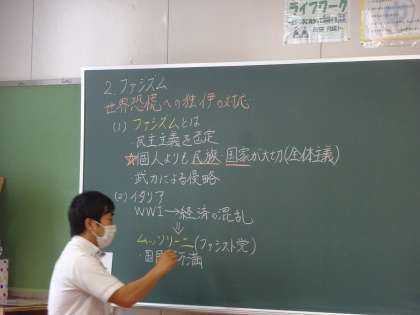 ライフワーク
2. ファシズム
世界恐慌への独伊の対応
(1) ファシズムとは
・民主主義を否定
☆個人よりも民族、国家が大切(全体主義)
・武力による侵略
(2) イタリア
WWI→経済の混乱
⇓
ムッソリーニ(ファシスト党)
・国民 不満